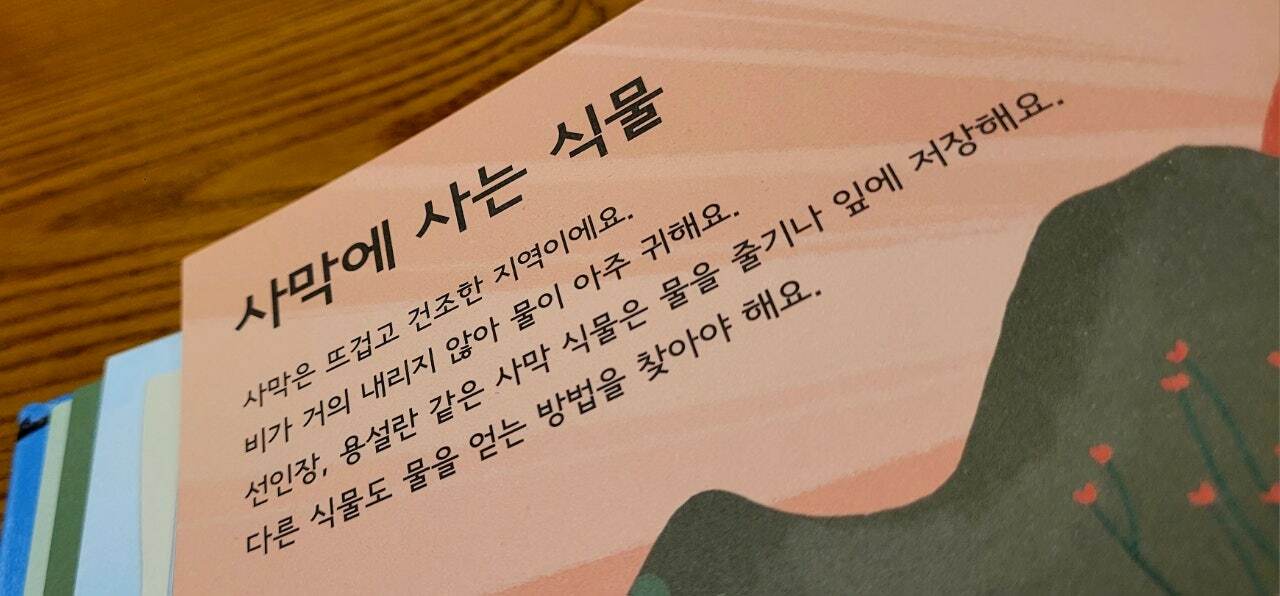 사막에 사는 식물
사막은 뜨겁고 건조한 지역이에요.
비가 거의 내리지 않아 물이 아주 귀해요.
선인장, 용설란 같은 사막 식물은 물을 줄기나 잎에 저장해요.
다른 식물도 물을 얻는 방법을 찾아야 해요.